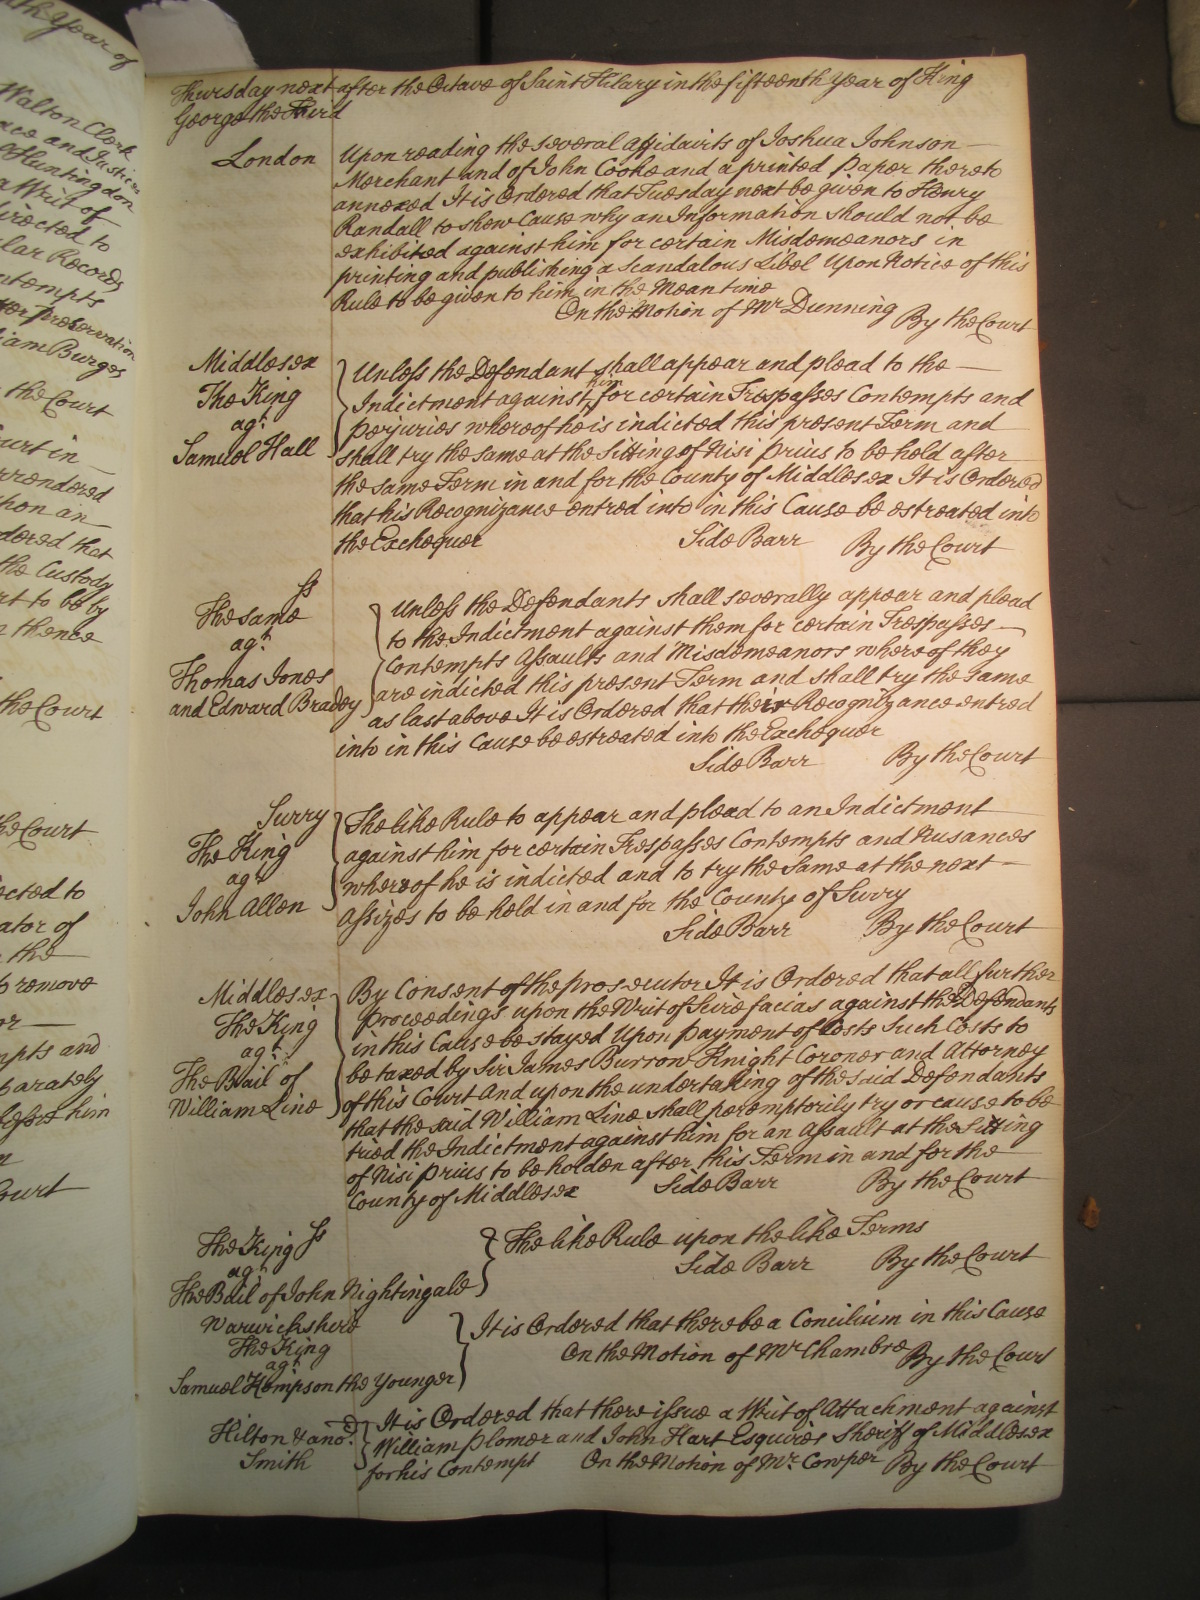 th Year of
Walton Clerk
ace and Justices
Huntingdon
a Writ of
directed to
ular Records
ntempts
ter preservation
liam Burges
the Court
Court in
rrendered
pon an
dered that
the Custody
rt to be by
n thence
the Court
the Court
ected to
ator of
the
o remove
or
mpts and
parately
lesse him
Court
Thursday next after the Octave of Saint Hilary in the fifteenth Year of King
George the Third
London
Upon reading the several affidavits of Joshua Johnson
Merchant and of John Cooke and a printed paper thereto
annexed It is Ordered that Tuesday next be given to Henry
Randall to shew Cause why an Information should not be
exhibited against him for certain Misdemeanors in
printing and publishing a Scandalous Libel Upon Notice of this
Rule to be given to him in the Mean time
On the Motion of Mr Dunning By the Court
Middlesex
The King
agt
Samuel Hall
Unless the Defendant shall appear and plead to the
Indictment against him for certain Trespasses Contempts and
perjuries whereof he is indicted this present Term and
shall try the same at the Sitting of Nisi prius to be held after
the same Term in and for the County of Middlesex It is Ordered
that his Recognizance entred into in this Cause be estreated into
the Exchequer Side Barr By the Court
ss
The same
agt
Thomas Jones
and Edward Bradey
Unless the Defendants shall severally appear and plead
to the Indictment against them for certain Trespasses
Contempts Assaults and Misdemeanors whereof they
are indicted this present Term and shall try the same
as last above It is Ordered that their Recognizance entred
into in this Cause be estreated into the Exchequer
Side Barr By the Court
Surry
The King
agt
John Allen
The like Rule to appear and plead to an Indictment
against him for certain Trespasses Contempts and Nusances
whereof he is indicted and to try the Same at the next
Assizes to be held in and for the County of Surry
Side Barr By the Court
Middlesex
The King
agt
The Bail of
William Line
By Consent of the prosecutor It is Ordered that all further
proceedings upon the Writ of Scire facias against the Defendants
in this Cause be stayed Upon payment of Costs Such Costs to
be taxed by Sir James Burrow Knight Coroner and Attorney
of this Court And upon the undertaking of the said Defendants
that the said William Line shall peremptorily try or cause to be
tried the Indictment against him for an Assault at the Sitting
of Nisi prius to be holden after this Term in and for the
County of Middlesex Side Barr By the Court
The King ss
agt
The Bail of John Nightingale
The like Rule upon the like Terms
Side Barr By the Court
Warwickshire
The King
agt
Samuel Hempson the Younger
It is Ordered that there be a Concilium in this Cause
On the Motion of Mr Chambre By the Court
Hilton & anor.
Smith
It is Ordered that there issue a Writ of Attachment against
William Plomer and John Hart Esquires Sheriff of Middlesex
for his Contempt On the Motion of Mr. Cowper By the Court